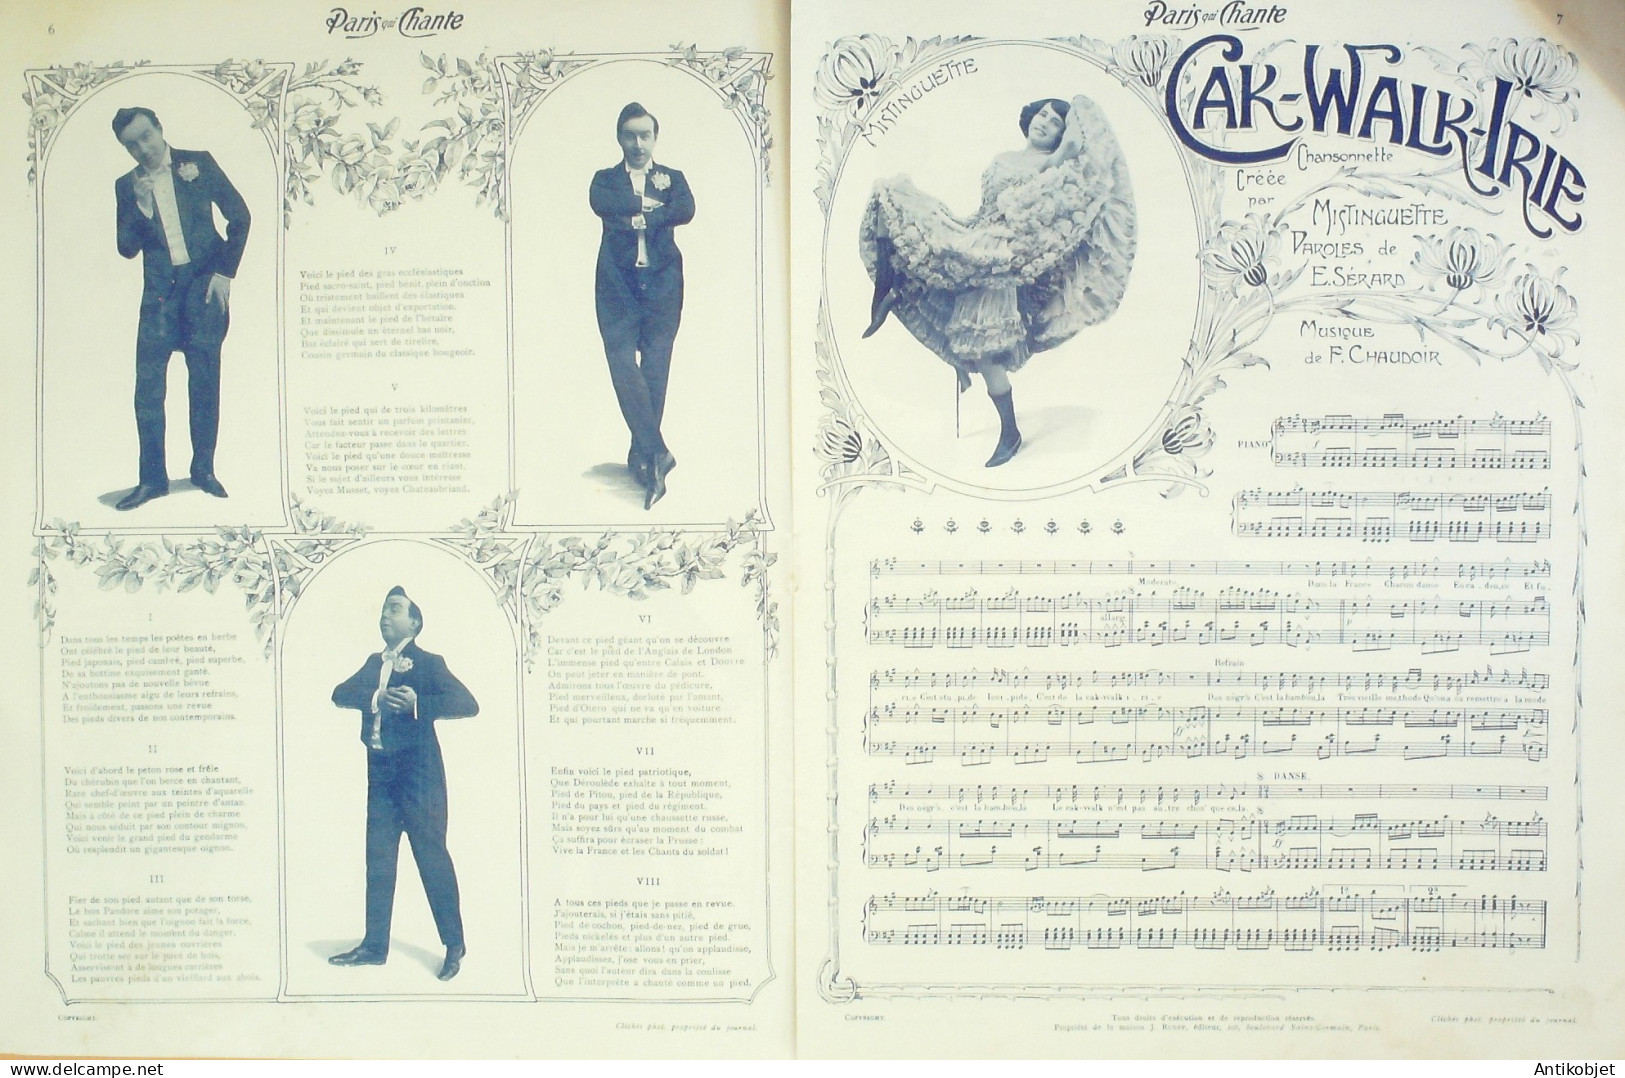 6
Paris qui Chante
IV
Voici le pied des gras ecclésiastiques
Pied sacro-saint, pied bénit, plein d'onction
Où tristement baillent des élastiques
Et qui devient objet d'exportation.
Et maintenant le pied de l'hétaïre
Que dissimule un éternel bas noir,
Bas éclairé qui sert de tirelire,
Cousin germain du classique bougeoir.
V
Voici le pied qui de trois kilomètres
Vous fait sentir un parfum printanier,
Attendez-vous à recevoir des lettres
Car le facteur passe dans le quartier.
Voici le pied qu'une douce maîtresse
Va nous poser sur le cœur en riant.
Si le sujet d'ailleurs vous intéresse
Voyez Musset, voyez Chateaubriand.
I
Dans tous les temps les poètes en herbe
Ont célébré le pied de leur beauté,
Pied japonais, pied cambré, pied superbe,
De sa bottine exquisement ganté.
N'ajoutons pas de nouvelle bévue
A l'enthousiasme aigu de leurs refrains,
Et froidement, passons une revue
Des pieds divers de nos contemporains.
II
Voici d'abord le peton rose et frêle
Du chérubin que l'on berce en chantant,
Rare chef-d'œuvre aux teintes d'aquarelle
Qui semble peint par un peintre d'antan.
Mais à côté de ce pied plein de charme
Qui nous séduit par son contour mignon,
Voici venir le grand pied du gendarme
Où resplendit un gigantesque oignon.
III
Fier de son pied autant que de son torse,
Le bon Pandore aime son potager,
Et sachant bien que l'oignon fait la force,
Calme il attend le moment du danger.
Voici le pied des jeunes ouvrières
Qui trotte sec sur le pavé de bois,
Asservissent à de longues carrières
Les pauvres pieds d'un vieillard aux abois.
VI
Devant ce pied géant qu'on se découvre
Car c'est le pied de l'Anglais de London
L'immense pied qu'entre Calais et Douvre
On peut jeter en manière de pont.
Admirons tous l'œuvre du pédicure,
Pied merveilleux, dorloté par l'amant,
Pied d'Otero qui ne va qu'en voiture
Et qui pourtant marche si fréquemment.
VII
Enfin voici le pied patriotique,
Que Déroulède exhalte à tout moment,
Pied de Pitou, pied de la République,
Pied du pays et pied du régiment.
Il n'a pour lui qu'une chaussette russe,
Mais soyez sûrs qu'au moment du combat
Ça suffira pour écraser la Prusse :
Vive la France et les Chants du soldat !
VIII
A tous ces pieds que je passe en revue.
J'ajouterais, si j'étais sans pitié,
Pied de cochon, pied-de-nez, pied de grue,
Pieds nickelés et plus d'un autre pied.
Mais je m'arrête: allons! qu'on applaudisse,
Applaudissez, j'ose vous en prier,
Sans quoi l'auteur dira dans la coulisse
Que l'interprète a chanté comme un pied.
COPYRIGHT.
Clichés phot. propriété du journal.
Paris qui Chante
7
MISTINGUETTE
CAK-WALK-IRIE
Chansonnette
Créée
par
MISTINGUETTE
PAROLES de
E. SÉRARD
MUSIQUE
de F. CHAUDOIR
PIANO
f
Moderato
Dans la France Chacun danse En ca-den-ce Et fu-
allarg.
Refrain
ri-e C'est stu-pi-de In-si-pi-de, C'est de la cak-walk i-ri-e Des nègr's C'est la bamboula Très vieille méthode Qu'on a remettre a la mode
ff
DANSE.
Des nègr's, c'est la bam-bou-la Le cak-walk n'mt pas au-tre chos' que ce-la.
ff
1ª
2ª
COPYRIGHT.
Tous droits d'exécution et de reproduction réservés.
Clichés phot. propriété du journal.
Antikobjet